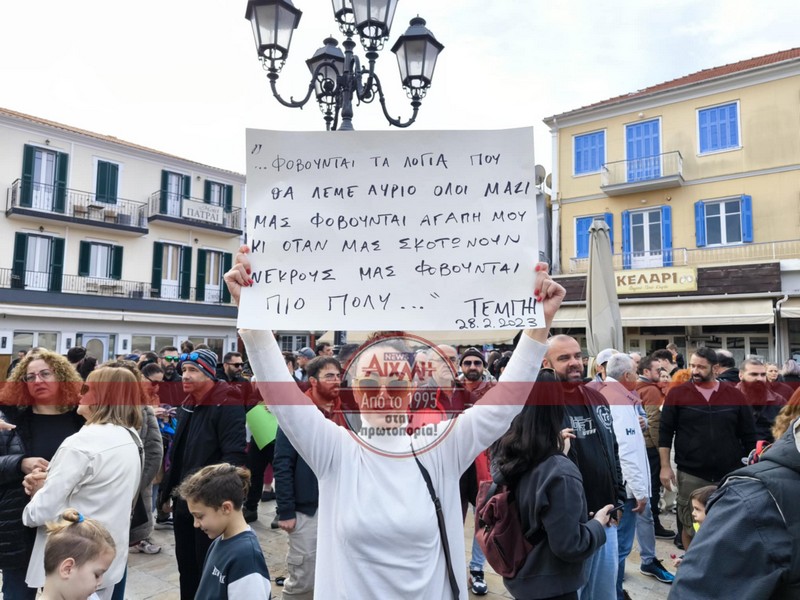 "...ΦΟΒΟΥΝΤΑΙ ΤΑ ΛΟΓΙΑ ΠΟΥ
ΘΑ ΛΕΜΕ ΑΥΡΙΟ ΟΛΟΙ ΜΑΖΙ
ΜΑΣ ΦΟΒΟΥΝΤΑΙ ΑΓΑΠΗ ΜΟΥ
ΚΙ ΟΤΑΝ ΜΑΣ ΣΚΟΤΩΝΟΥΝ
ΝΕΚΡΟΥΣ ΜΑΣ ΦΟΒΟΥΝΤΑΙ
ΠΙΟ ΠΟΛΥ..."
ΤΕΜΠΗ
28.2.2023
ΠΑΤΡΑΙ
ΚΕΛΑΡΙ
NEWS
ΑΙΧΜΗ
Από το 1995
στην
πρωτοπορία!